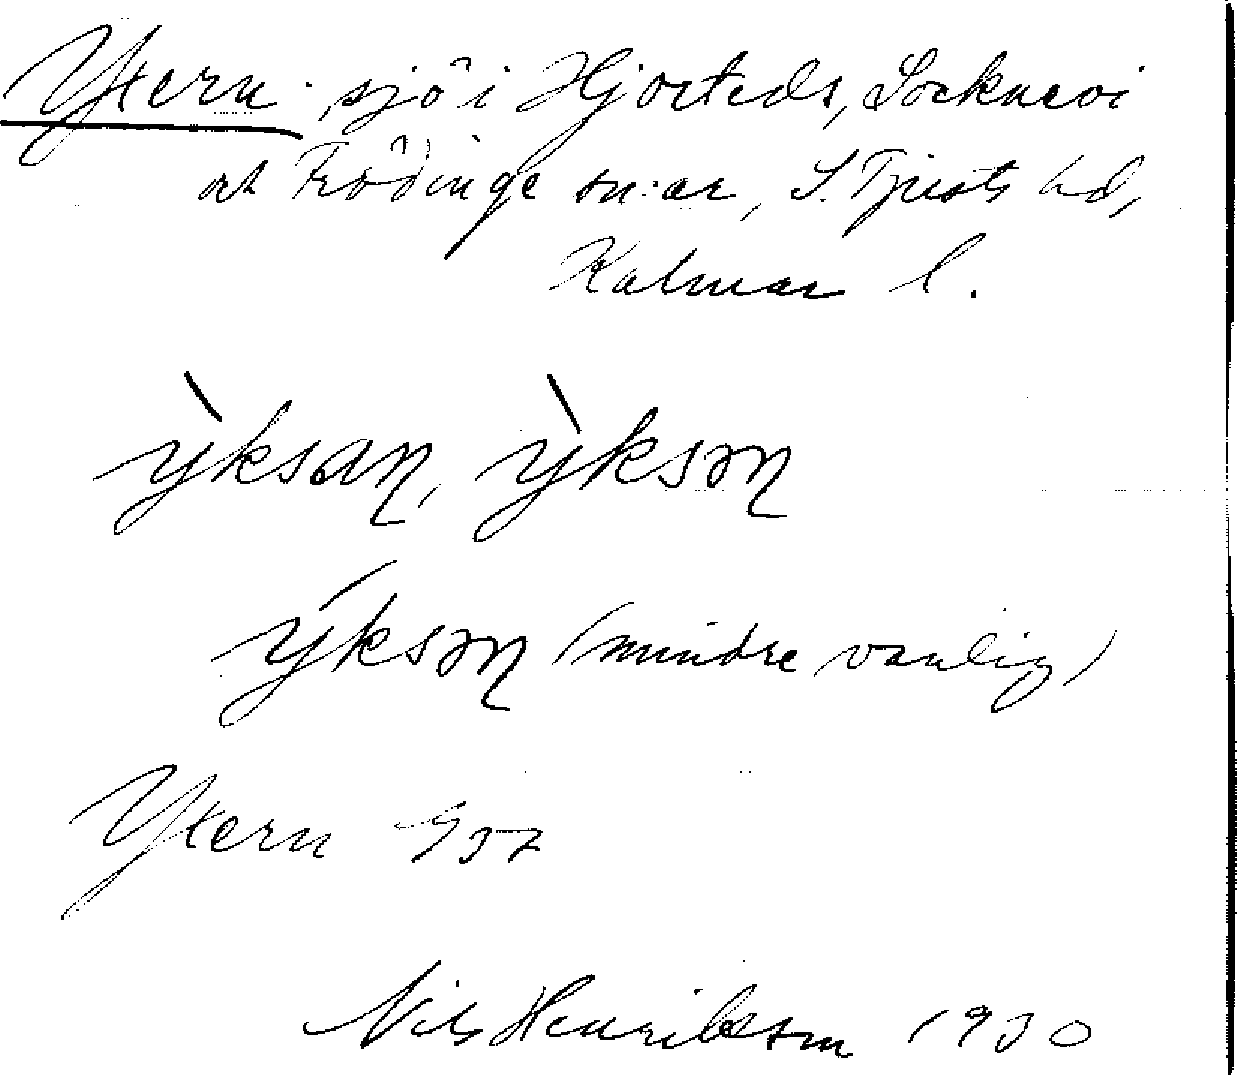 Yxern sjö i Hjorteds, Locknevi
och Frödinge sn:ar, S. Tjusts hd,
Kalmar l.
ỳksan, ỳksən
ýksən (mindre vanlig)
Yxern
Nils Henriksson 1930